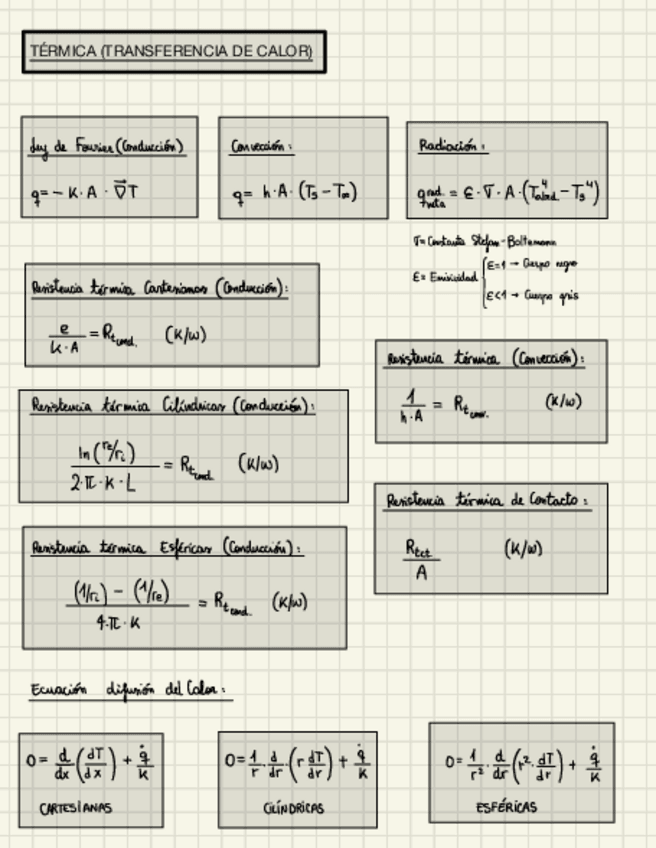 TÉRMICA (TRANSFERENCIA DE CALOR)
Ley de Fourier (Conducción)
q = - K · A · ∇⃗T
Convección:
q = h · A · (Ts - T∞)
Radiación:
q rad. neta = ε · σ · A · (T⁴alred. - Ts⁴)
σ = Constante Stefan-Boltzmann
ε = Emisividad { ε=1 → Cuerpo negro
ε<1 → Cuerpo gris
Resistencia térmica Cartesianas (Conducción):
e / (k · A) = Rt cond. (K/w)
Resistencia térmica (Convección):
1 / (h · A) = Rt conv. (K/w)
Resistencia térmica Cilíndricas (Conducción):
ln(re/ri) / (2·π·k·L) = Rt cond. (K/w)
Resistencia térmica de Contacto:
Rtct / A (K/w)
Resistencia térmica Esféricas (Conducción):
((1/ri) - (1/re)) / (4·π·K) = Rt cond. (K/w)
Ecuación difusión del Calor:
0 = d/dx (dT/dx) + q̇/K
CARTESIANAS
0 = 1/r · d/dr · (r dT/dr) + q̇/K
CILÍNDRICAS
0 = 1/r² · d/dr (r² · dT/dr) + q̇/K
ESFÉRICAS